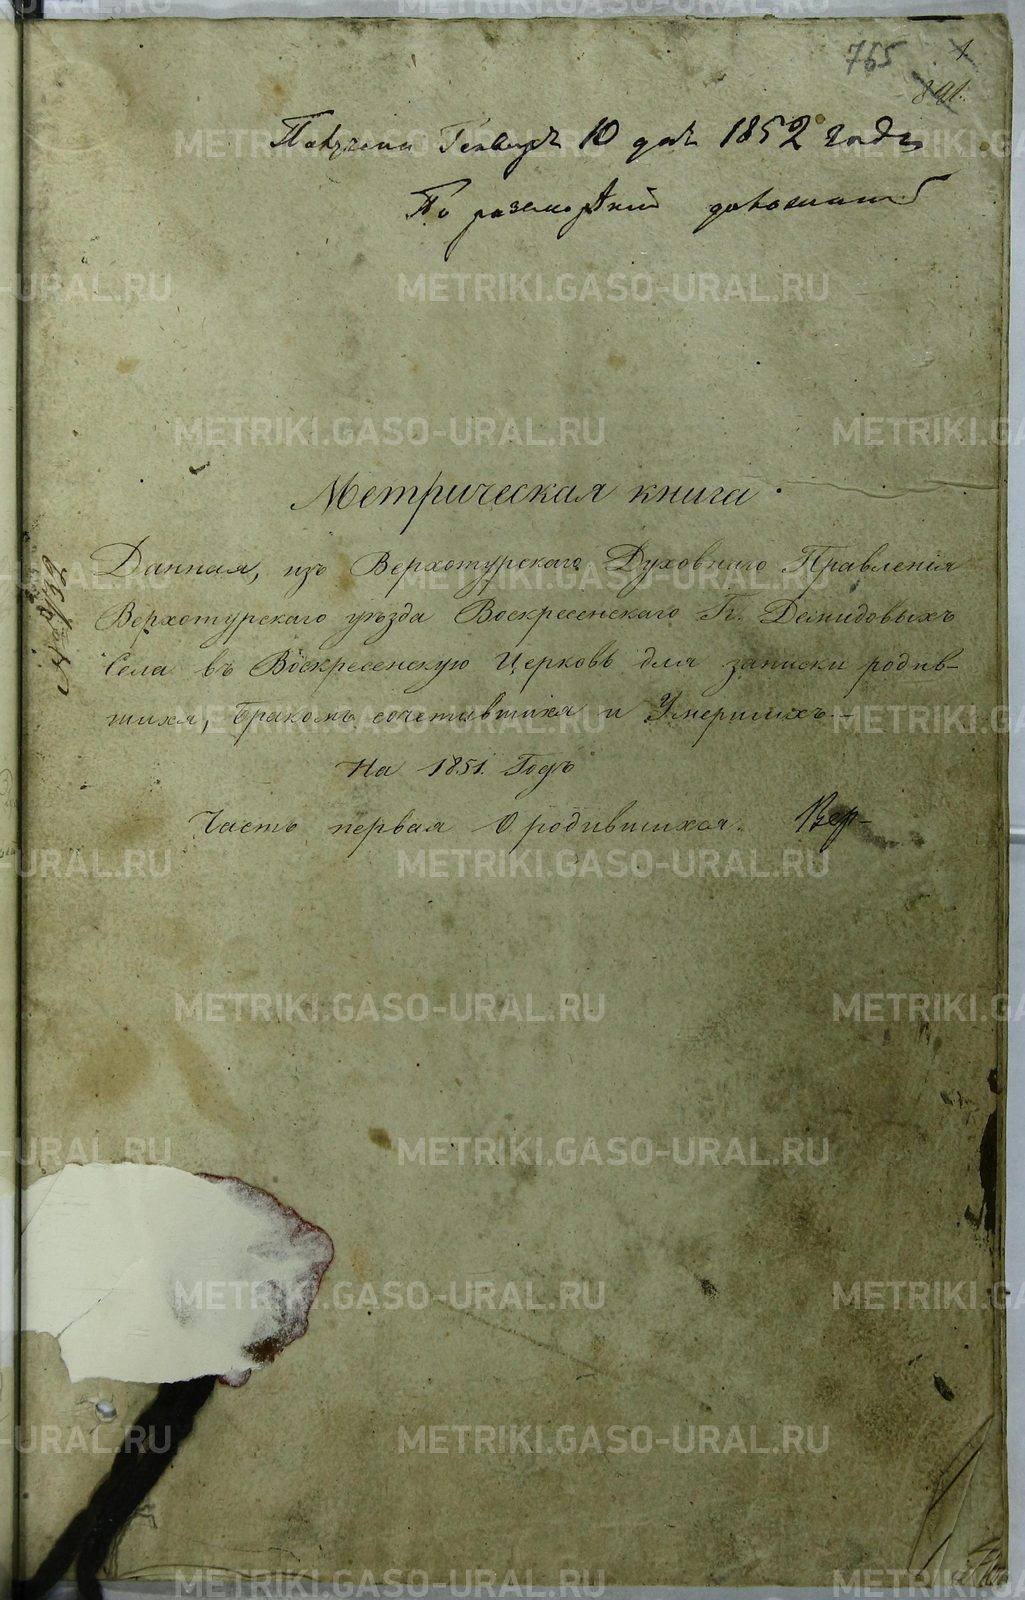 765
1
891.
Получена Генваря 10 дня 1852 года
По разсмотрѣнiи доложить
Метрическая книга
Данная, изъ Верхотурскаго Духовнаго Правленiя
Верхотурскаго уѣзда Воскресенскаго Гг. Демидовыхъ
Села въ Воскресенскую Церковь для записки родив-
шихся, бракомъ сочетавшихся и Умершихъ.-
На 1851. Годъ
Часть первая О родившихся. Вер-
METRIKI.GASO-URAL.RU